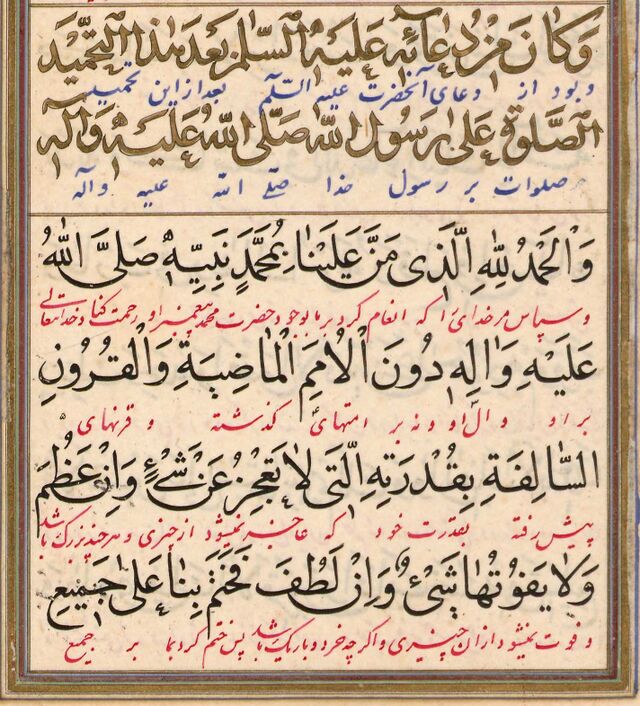 وَكَانَ مِنْ دُعَائِهِ عَلَيْهِ السَّلَامُ بَعْدَ هٰذَا التَّحْمِيدِ
و بود از دعای آنحضرت علیه السّلام بعد از این تحمید
الصَّلٰوةُ عَلٰى رَسُولِ اللهِ صَلَّى اللهُ عَلَيْهِ وَآلِهِ
صلوات بر رسول خدا صلّی الله علیه وآله
وَالْحَمْدُ لِلّٰهِ الَّذِي مَنَّ عَلَيْنَا بِمُحَمَّدٍ نَبِيِّهِ صَلَّى اللهُ
و سپاس مر خدای را که انعام کرد بر ما بوجود حضرت محمد پیغمبر او رحمت کناد خدایتعالی
عَلَيْهِ وَاٰلِهِ دُونَ الْأُمَمِ الْمَاضِيَةِ وَالْقُرُونِ
بر او و آل او و نه بر امتهای گذشته و قرنهای
السَّالِفَةِ بِقُدْرَتِهِ الَّتِي لَا تَعْجِزُ عَنْ شَيْءٍ وَإِنْ عَظُمَ
پیش رفته بقدرت خود که عاجز نمیشود از چیزی و هر چند بزرگ باشد
وَلَا يَفُوتُهَا شَيْءٌ وَإِنْ لَطُفَ فَخَتَمَ بِنَا عَلٰى جَمِيعِ
و فوت نمیشود از ان چیزی و اگر چه خرد و باریک باشد پس ختم کرد بما بر جمیع